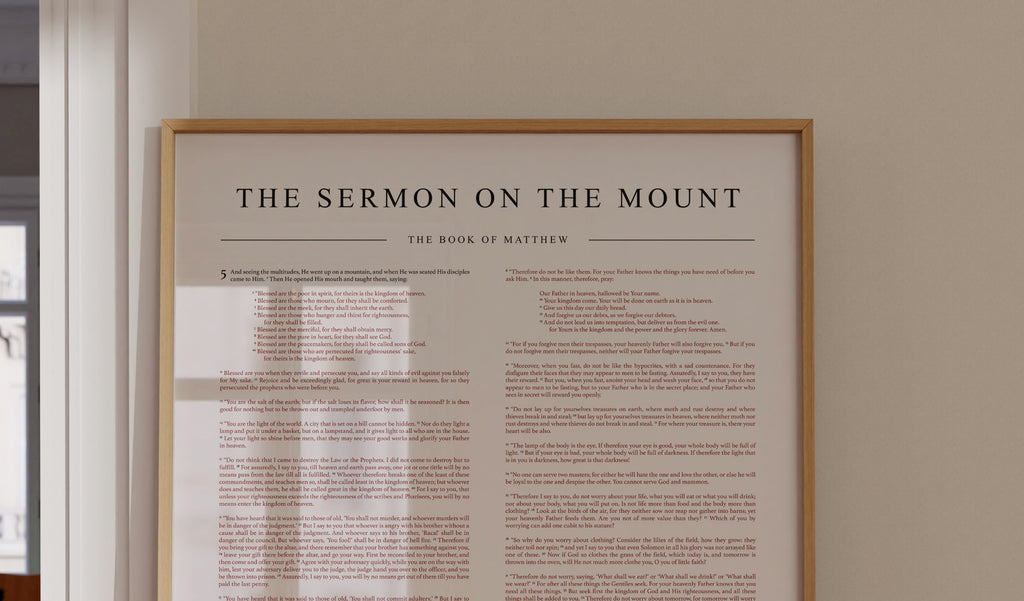 THE SERMON ON THE MOUNT
THE BOOK OF MATTHEW
5 And seeing the multitudes, He went up on a mountain, and when He was seated His disciples
came to Him. ² Then He opened His mouth and taught them, saying:
³ "Blessed are the poor in spirit, for theirs is the kingdom of heaven.
⁴ Blessed are those who mourn, for they shall be comforted.
⁵ Blessed are the meek, for they shall inherit the earth.
⁶ Blessed are those who hunger and thirst for righteousness,
for they shall be filled.
⁷ Blessed are the merciful, for they shall obtain mercy.
⁸ Blessed are the pure in heart, for they shall see God.
⁹ Blessed are the peacemakers, for they shall be called sons of God.
¹⁰ Blessed are those who are persecuted for righteousness' sake,
for theirs is the kingdom of heaven.
¹¹ Blessed are you when they revile and persecute you, and say all kinds of evil against you falsely
for My sake. ¹² Rejoice and be exceedingly glad, for great is your reward in heaven, for so they
persecuted the prophets who were before you.
¹³ "You are the salt of the earth; but if the salt loses its flavor, how shall it be seasoned? It is then
good for nothing but to be thrown out and trampled underfoot by men.
¹⁴ "You are the light of the world. A city that is set on a hill cannot be hidden. ¹⁵ Nor do they light a
lamp and put it under a basket, but on a lampstand, and it gives light to all who are in the house.
¹⁶ Let your light so shine before men, that they may see your good works and glorify your Father
in heaven.
¹⁷ "Do not think that I came to destroy the Law or the Prophets. I did not come to destroy but to
fulfill. ¹⁸ For assuredly, I say to you, till heaven and earth pass away, one jot or one tittle will by no
means pass from the law till all is fulfilled. ¹⁹ Whoever therefore breaks one of the least of these
commandments, and teaches men so, shall be called least in the kingdom of heaven; but whoever
does and teaches them, he shall be called great in the kingdom of heaven. ²⁰ For I say to you, that
unless your righteousness exceeds the righteousness of the scribes and Pharisees, you will by no
means enter the kingdom of heaven.
²¹ "You have heard that it was said to those of old, 'You shall not murder, and whoever murders will
be in danger of the judgment.' ²² But I say to you that whoever is angry with his brother without a
cause shall be in danger of the judgment. And whoever says to his brother, 'Raca!' shall be in
danger of the council. But whoever says, 'You fool!' shall be in danger of hell fire. ²³ Therefore if
you bring your gift to the altar, and there remember that your brother has something against you,
²⁴ leave your gift there before the altar, and go your way. First be reconciled to your brother, and
then come and offer your gift. ²⁵ Agree with your adversary quickly, while you are on the way with
him, lest your adversary deliver you to the judge, the judge hand you over to the officer, and you
be thrown into prison. ²⁶ Assuredly, I say to you, you will by no means get out of there till you have
paid the last penny.
²⁷ "You have heard that it was said to those of old, 'You shall not commit adultery.' ²⁸ But I say to
⁸ "Therefore do not be like them. For your Father knows the things you have need of before you
ask Him. ⁹ In this manner, therefore, pray:
Our Father in heaven, hallowed be Your name.
¹⁰ Your kingdom come. Your will be done on earth as it is in heaven.
¹¹ Give us this day our daily bread.
¹² And forgive us our debts, as we forgive our debtors.
¹³ And do not lead us into temptation, but deliver us from the evil one.
for Yours is the kingdom and the power and the glory forever. Amen.
¹⁴ "For if you forgive men their trespasses, your heavenly Father will also forgive you. ¹⁵ But if you
do not forgive men their trespasses, neither will your Father forgive your trespasses.
¹⁶ "Moreover, when you fast, do not be like the hypocrites, with a sad countenance. For they
disfigure their faces that they may appear to men to be fasting. Assuredly, I say to you, they have
their reward. ¹⁷ But you, when you fast, anoint your head and wash your face, ¹⁸ so that you do not
appear to men to be fasting, but to your Father who is in the secret place; and your Father who
sees in secret will reward you openly.
¹⁹ "Do not lay up for yourselves treasures on earth, where moth and rust destroy and where
thieves break in and steal; ²⁰ but lay up for yourselves treasures in heaven, where neither moth nor
rust destroys and where thieves do not break in and steal. ²¹ For where your treasure is, there your
heart will be also.
²² "The lamp of the body is the eye. If therefore your eye is good, your whole body will be full of
light. ²³ But if your eye is bad, your whole body will be full of darkness. If therefore the light that
is in you is darkness, how great is that darkness!
²⁴ "No one can serve two masters; for either he will hate the one and love the other, or else he will
be loyal to the one and despise the other. You cannot serve God and mammon.
²⁵ "Therefore I say to you, do not worry about your life, what you will eat or what you will drink;
nor about your body, what you will put on. Is not life more than food and the body more than
clothing? ²⁶ Look at the birds of the air, for they neither sow nor reap nor gather into barns; yet
your heavenly Father feeds them. Are you not of more value than they? ²⁷ Which of you by
worrying can add one cubit to his stature?
²⁸ "So why do you worry about clothing? Consider the lilies of the field, how they grow: they
neither toil nor spin; ²⁹ and yet I say to you that even Solomon in all his glory was not arrayed like
one of these. ³⁰ Now if God so clothes the grass of the field, which today is, and tomorrow is
thrown into the oven, will He not much more clothe you, O you of little faith?
³¹ "Therefore do not worry, saying, 'What shall we eat?' or 'What shall we drink?' or 'What shall
we wear?' ³² For after all these things the Gentiles seek. For your heavenly Father knows that you
need all these things. ³³ But seek first the kingdom of God and His righteousness, and all these
things shall be added to you. ³⁴ Therefore do not worry about tomorrow, for tomorrow will worry